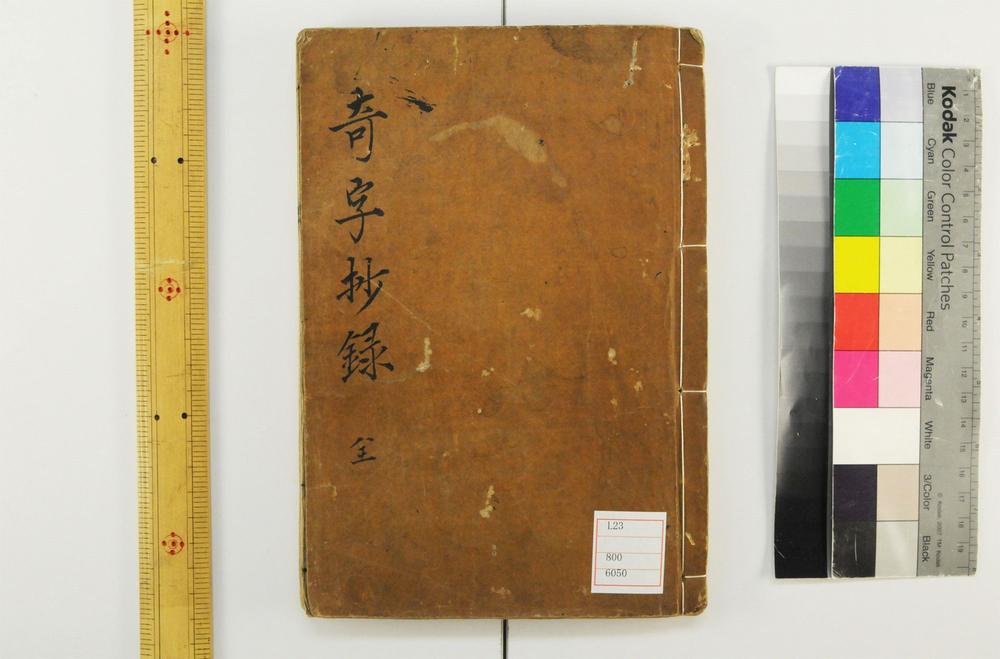 奇字抄録 全
L23
800
6050
Kodak Color Control Patches
Blue
Cyan
Green
Yellow
Red
Magenta
White
3/Color
Black
© Kodak, 2007 TM: Kodak
1
2
3
4
5
6
7
8
9
10
11
12
13
14
15
16
17
18
19